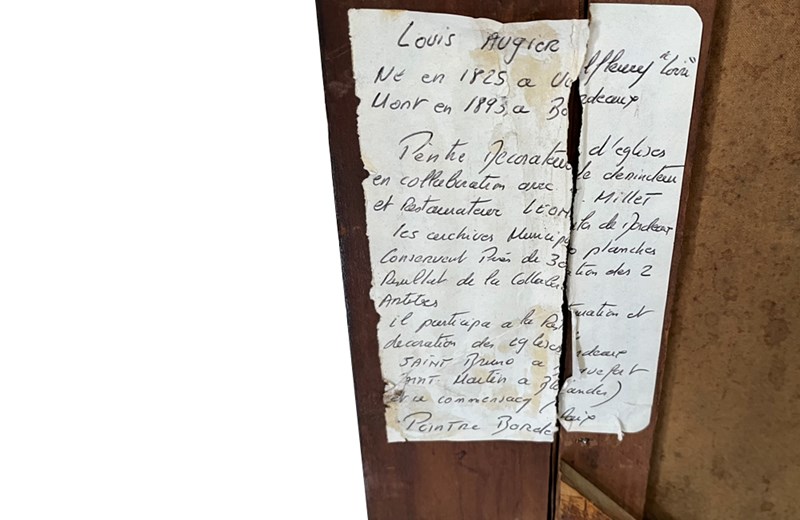 Louis Augier
Né en 1825 a Va lfleury "Loire"
Mort en 1893, a Bordeaux
Peintre Decorateur d'eglises
en collaboration avec le dessinateur
et Restaurateur LEON. MILLET
les archives Municipales de Bordeaux
Conservent Près de 30 planches
Resultat de la Collaboration des 2
Artistes
il participa a la Restauration et
decoration des eglises
SAINT Bruno a Bordeaux
SAINT Martin a
et a commensacq (Landes)
Peintre Borde laix